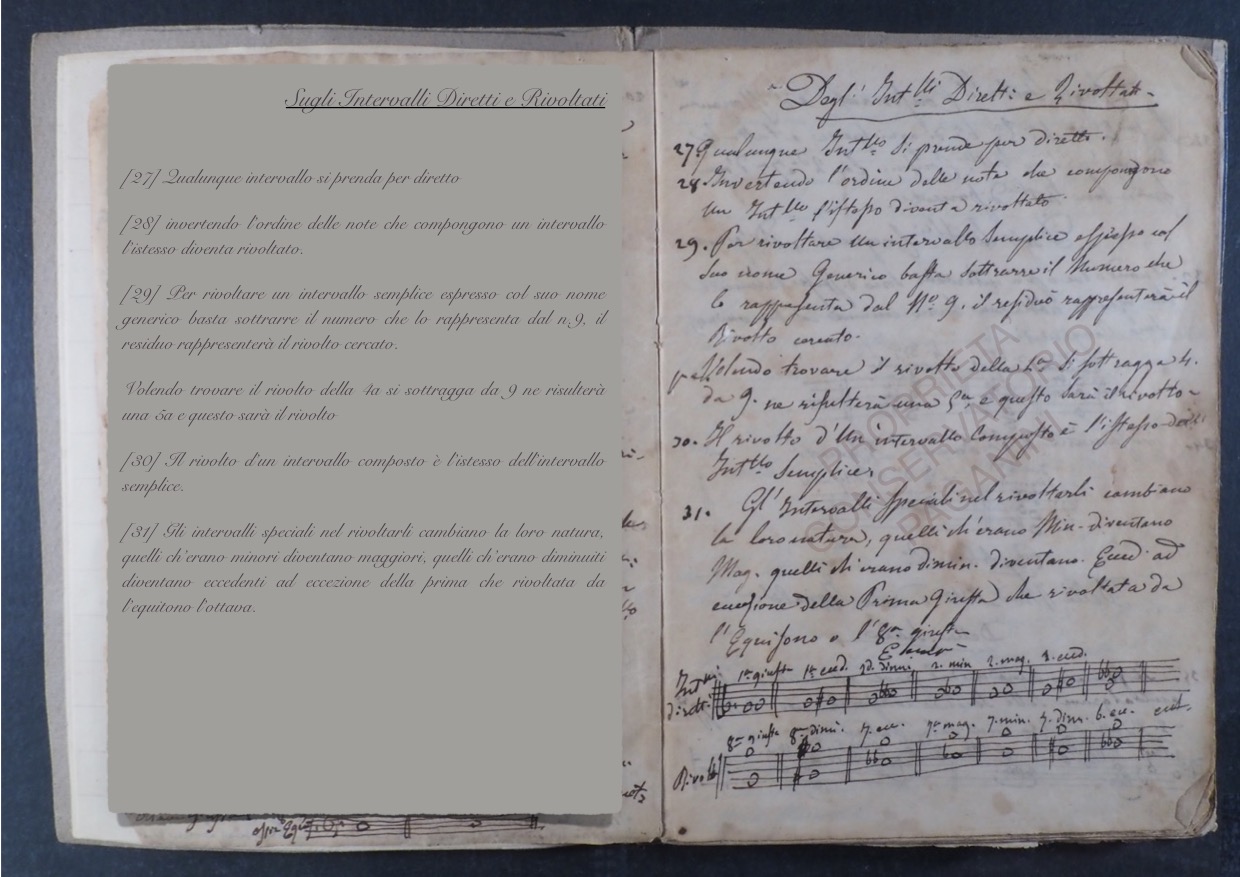 Sugli Intervalli Diretti e Rivoltati
[27] Qualunque intervallo si prenda per diretto
[28] invertendo l'ordine delle note che compongono un intervallo
l'istesso diventa rivoltato.
[29] Per rivoltare un intervallo semplice espresso col suo nome
generico basta sottrarre il numero che lo rappresenta dal n.9, il
residuo rappresenterà il rivolto cercato.
Volendo trovare il rivolto della 4a si sottragga da 9 ne risulterà
una 5a e questo sarà il rivolto
[30] Il rivolto d'un intervallo composto è l'istesso dell'intervallo
semplice.
[31] Gli intervalli speciali nel rivoltarli cambiano la loro natura,
quelli ch'erano minori diventano maggiori, quelli ch'erano diminuiti
diventano eccedenti ad eccezione della prima che rivoltata da
l'equitono l'ottava.
Degl' Int.lli Diretti e Rivoltati
27 Qualunque Int.llo si prende per diretto.
28 Invertendo l'ordine delle note che compongono
un Int.llo l'istesso diventa rivoltato
29. Per rivoltare un intervallo semplice espresso col
suo nome Generico basta sottrarre il Numero che
lo rappresenta dal N.o 9. il residuo rappresenterà il
Rivolto cercato.
Volendo trovare il rivolto della 4a si sottragga 4.
da 9. ne risulterà una 5a, e questo sarà il rivolto
30. Il rivolto d'un intervallo Composto è l'istesso
Int.llo Semplice
31. Gl' Intervalli speciali nel rivoltarli cambiano
la loro natura, quelli ch'erano Min. diventano
Mag. quelli ch'erano dimin. diventano. Ecced. ad
eccezione della Prima Giusta che rivoltata da
l'Equisono o l'8a giusta
Int.lli diretti 1a giusta 1a eced. 2a dimi. 2. min 2. mag. 2. eced.
8a giusta 8a dimi. 7. ecc. 7a mag. 7. min. 7. dim. 6. ecc. ecet.
Rivolti
PROPRIETÀ
CONSERVATORIO
PAGANINI